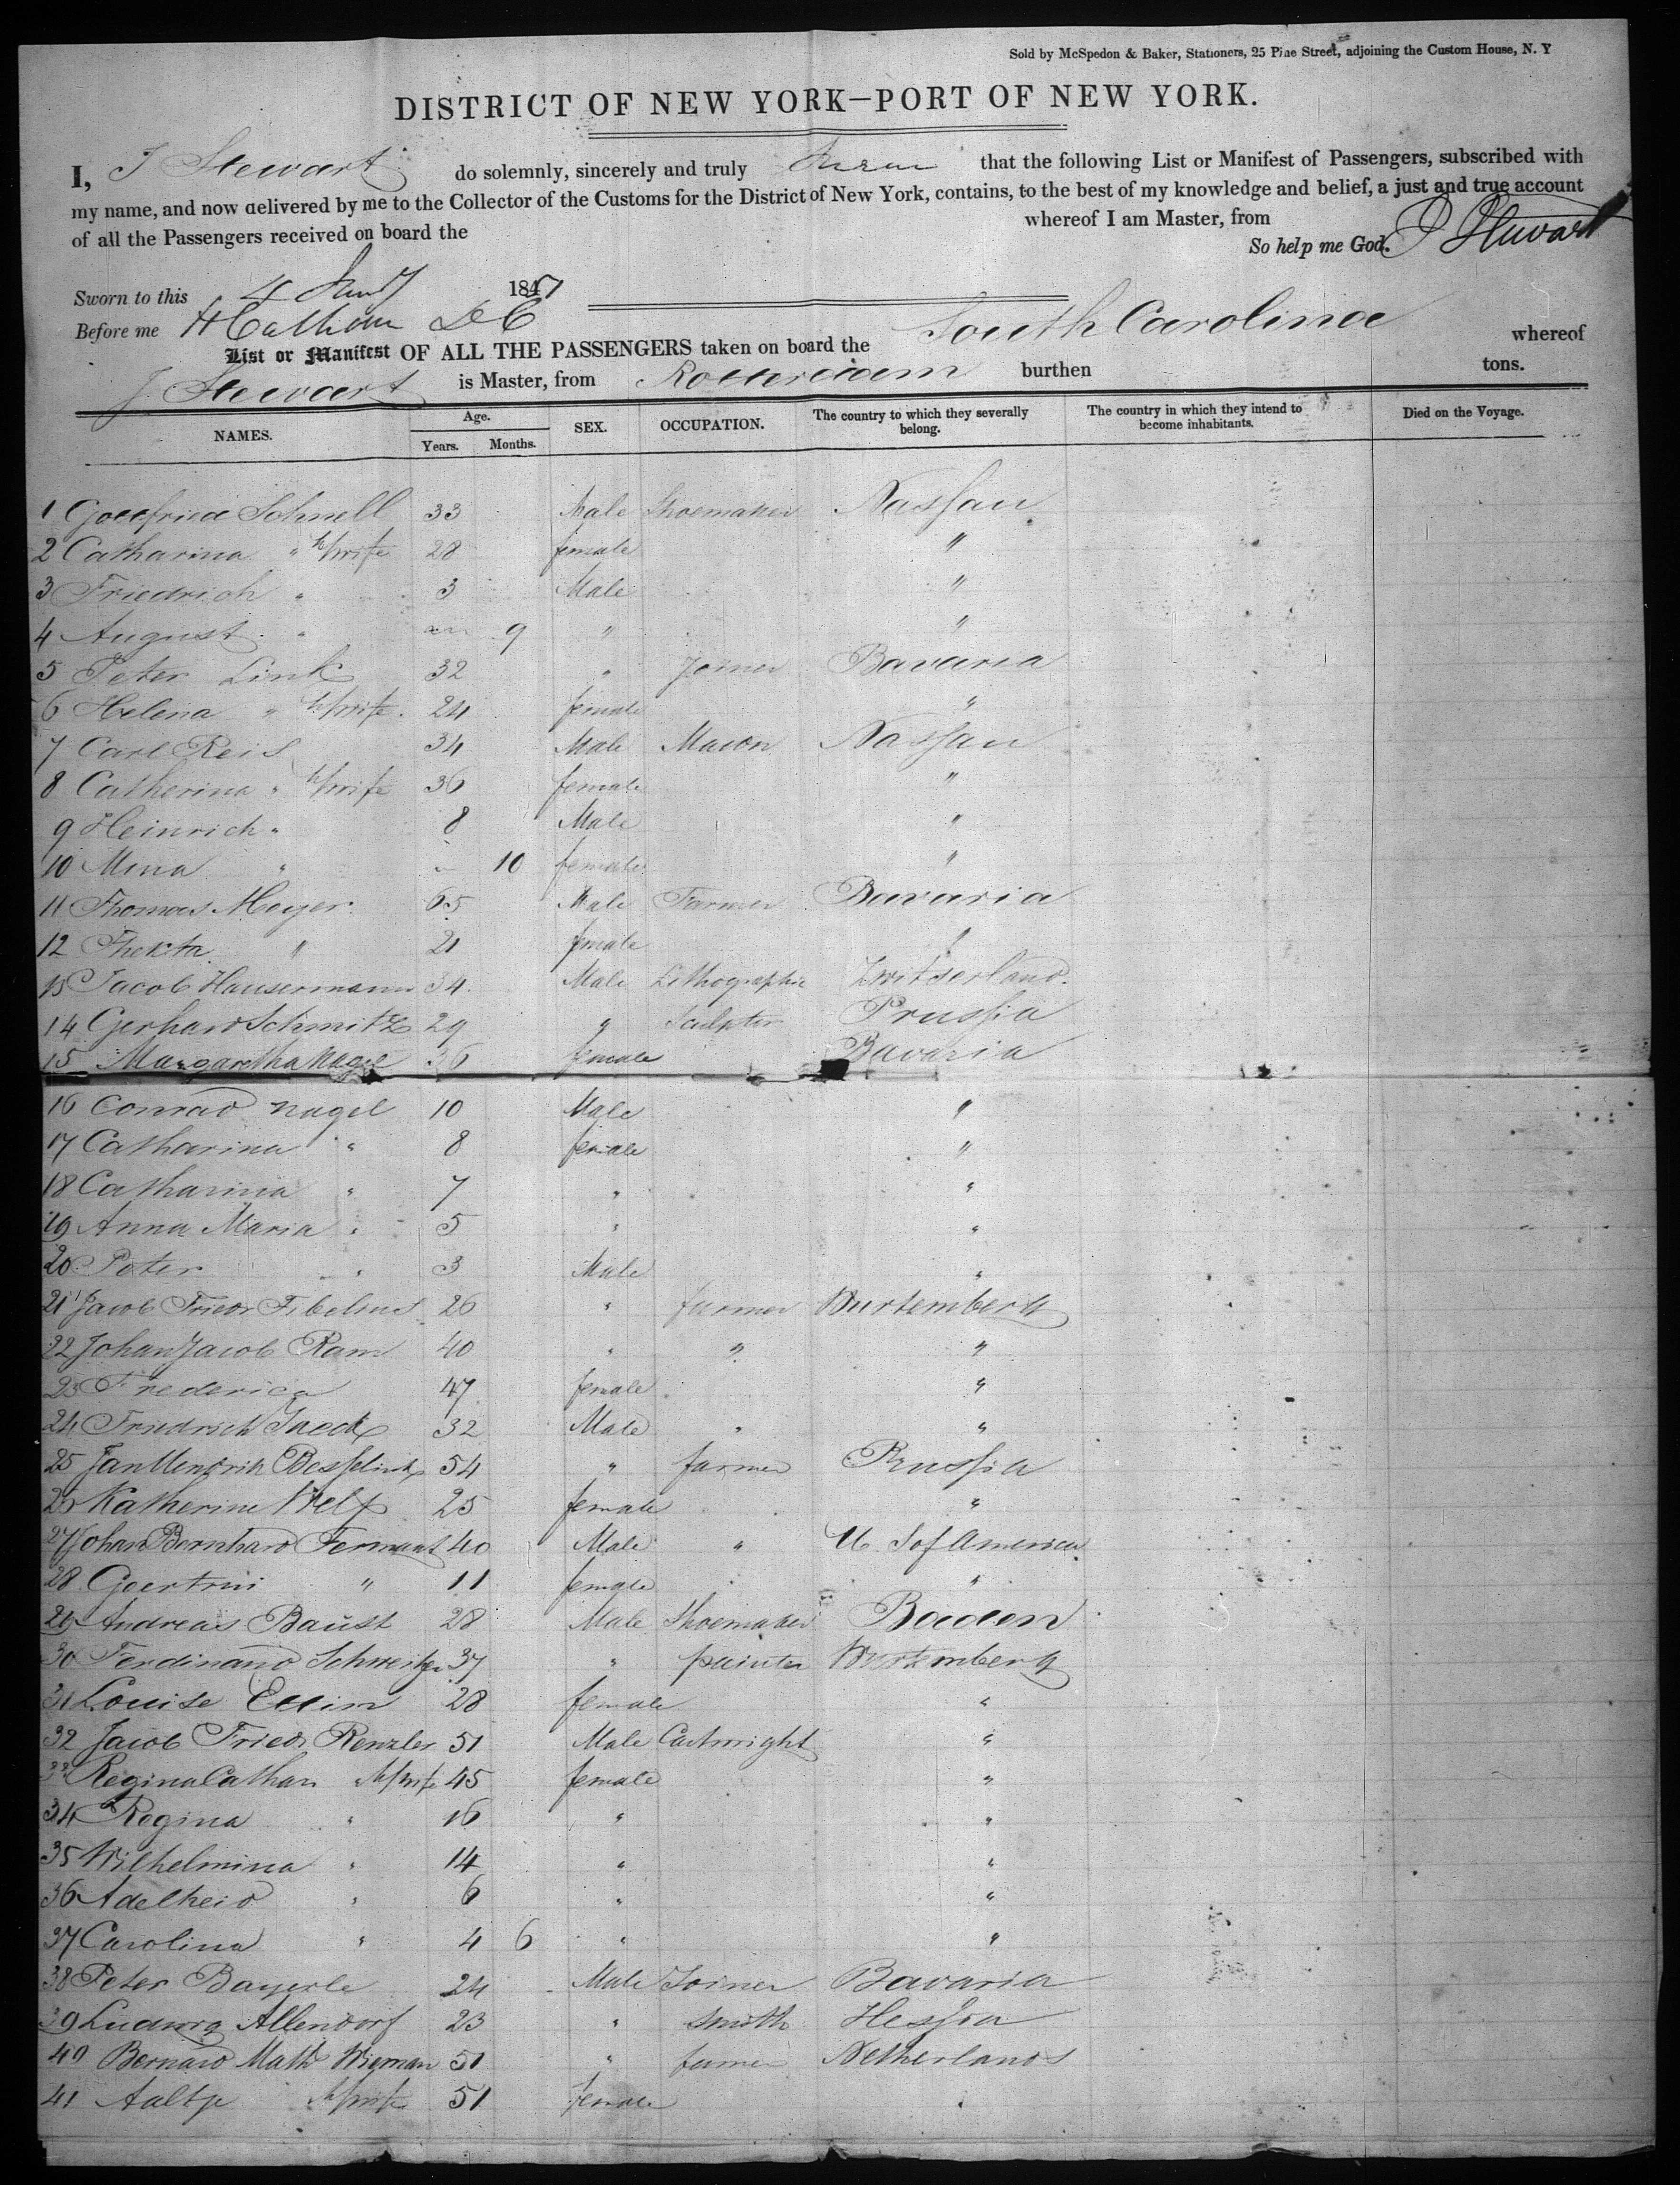 Sold by McSpedon & Baker, Stationers, 25 Pine Street, adjoining the Custom House, N. Y
DISTRICT OF NEW YORK—PORT OF NEW YORK.
I, J Stewart do solemnly, sincerely and truly that the following List or Manifest of Passengers, subscribed with
my name, and now delivered by me to the Collector of the Customs for the District of New York, contains, to the best of my knowledge and belief, a just and true account
of all the Passengers received on board the whereof I am Master, from
So help me God. J Stewart
Sworn to this 4 Jany 1847
Before me H Calhoun D C
List or Manifest OF ALL THE PASSENGERS taken on board the South Carolina whereof
J. Stewart is Master, from Rotterdam burthen tons.
NAMES. Age. Years. Months. SEX. OCCUPATION. The country to which they severally belong. The country in which they intend to become inhabitants. Died on the Voyage.
1 Gottfried Schnell 33 Male Shoemaker Nassau
2 Catharina " h/wife 28 female "
3 Friedrich " 3 Male "
4 August " 9 " "
5 Peter Link 32 " Joiner Bavaria
6 Helena " h/wife 24 female "
7 Carl Reis 34 Male Mason Nassau
8 Catherina " h/wife 36 female "
9 Heinrich " 8 Male "
10 Mina " 10 female "
11 Thomas Meyer 65 Male Farmer Bavaria
12 Thekta " 21 female "
13 Jacob Hausermann 34 Male Lithographie Zwitserland.
14 Gerhard Schmitz 29 " Sculptor Prussia
15 Margaretha Nagel 36 female Bavaria
16 Conrad Nagel 10 Male "
17 Catharina " 8 female "
18 Catharina " 7 " "
19 Anna Maria " 5 " "
20 Peter " 3 Male "
21 Jacob Friedr Fibelius 26 " farmer Wurtemberg
22 Johan Jacob Ram 40 " " "
23 Frederica 47 female "
24 Friedrich 32 Male " "
25 Jan Hendrik Besselink 54 " farmer Prussia
26 Katherine 25 female "
27 Johan Bernhard 40 Male " U. S of America
28 Geertrui " 11 female "
29 Andreas Baust 28 Male Shoemaker Baden
30 Ferdinand Schweitzer 37 " painter Wurtemberg
31 Louise 28 female "
32 Jacob Friedr Renzler 51 Male Cartwright "
33 Regina Cathar h/wife 45 female "
34 Regina " 16 " "
35 Wilhelmina " 14 " "
36 Adelheid " 6 " "
37 Carolina " 4 6 " "
38 Peter Bayerle 24 Male Joiner Bavaria
39 Ludwig Allendorf 23 " Smith Hessia
40 Bernard Math Wieman 51 " farmer Netherlands
41 Aaltje h/wife 51 female "